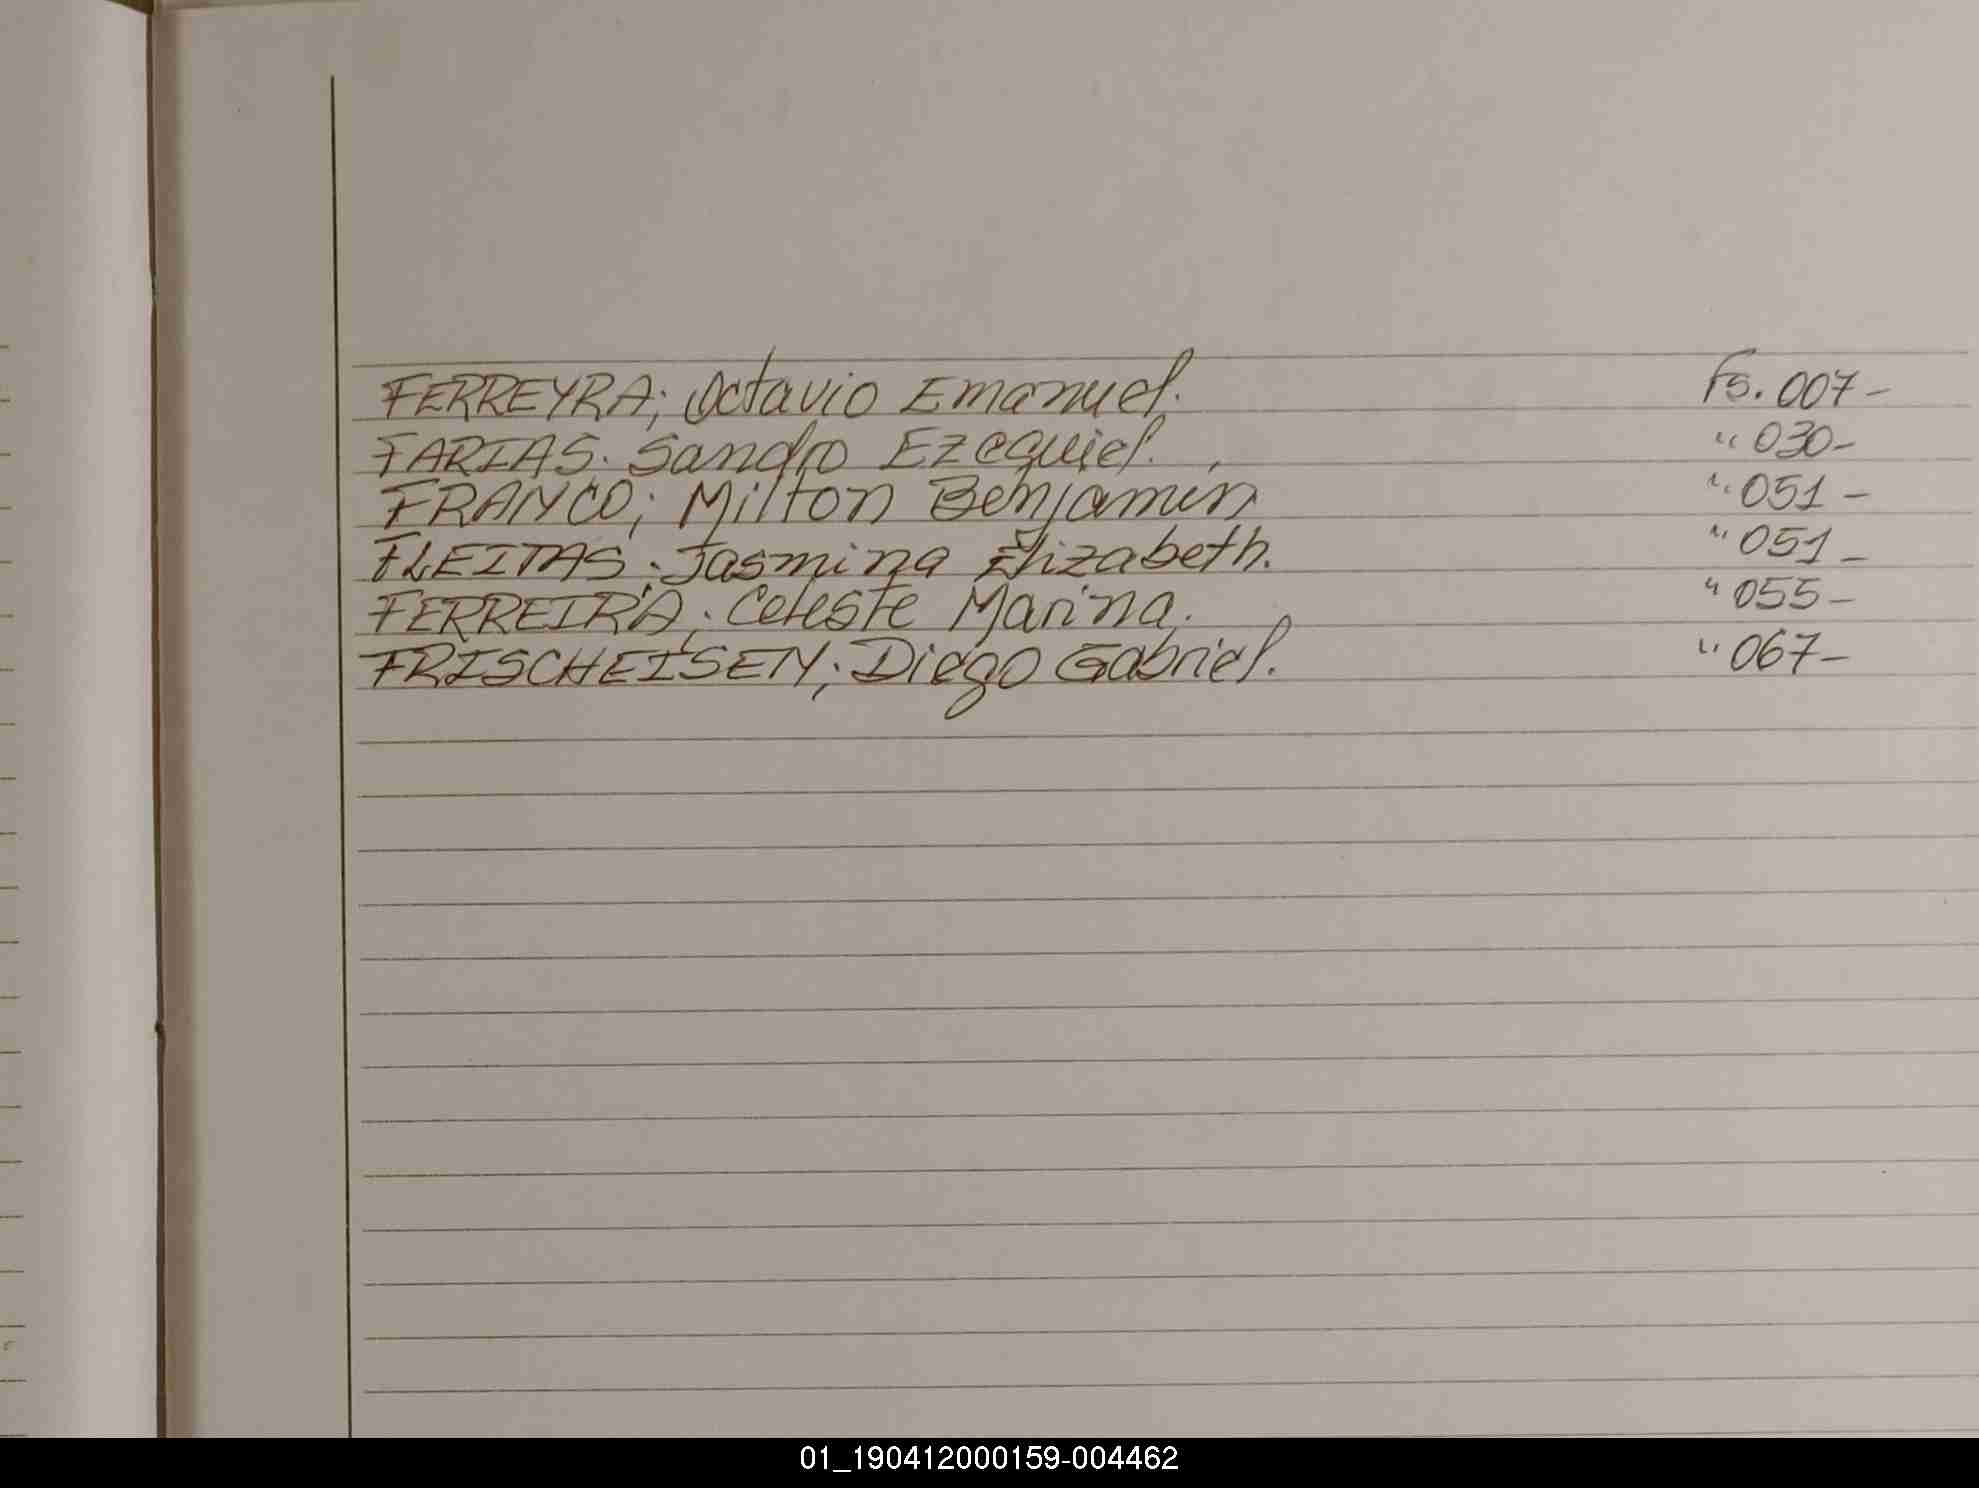 FERREYRA; Octavio Emanuel. Fs. 007-
FARIAS. Sandro Ezequiel. " 030-
FRANCO; Milton Benjamin " 051-
FLEITAS; Jasmina Elizabeth. " 051-
FERREIRA; Celeste Marina. " 055-
FRISCHEISEN; Diego Gabriel. " 067-
01_190412000159-004462